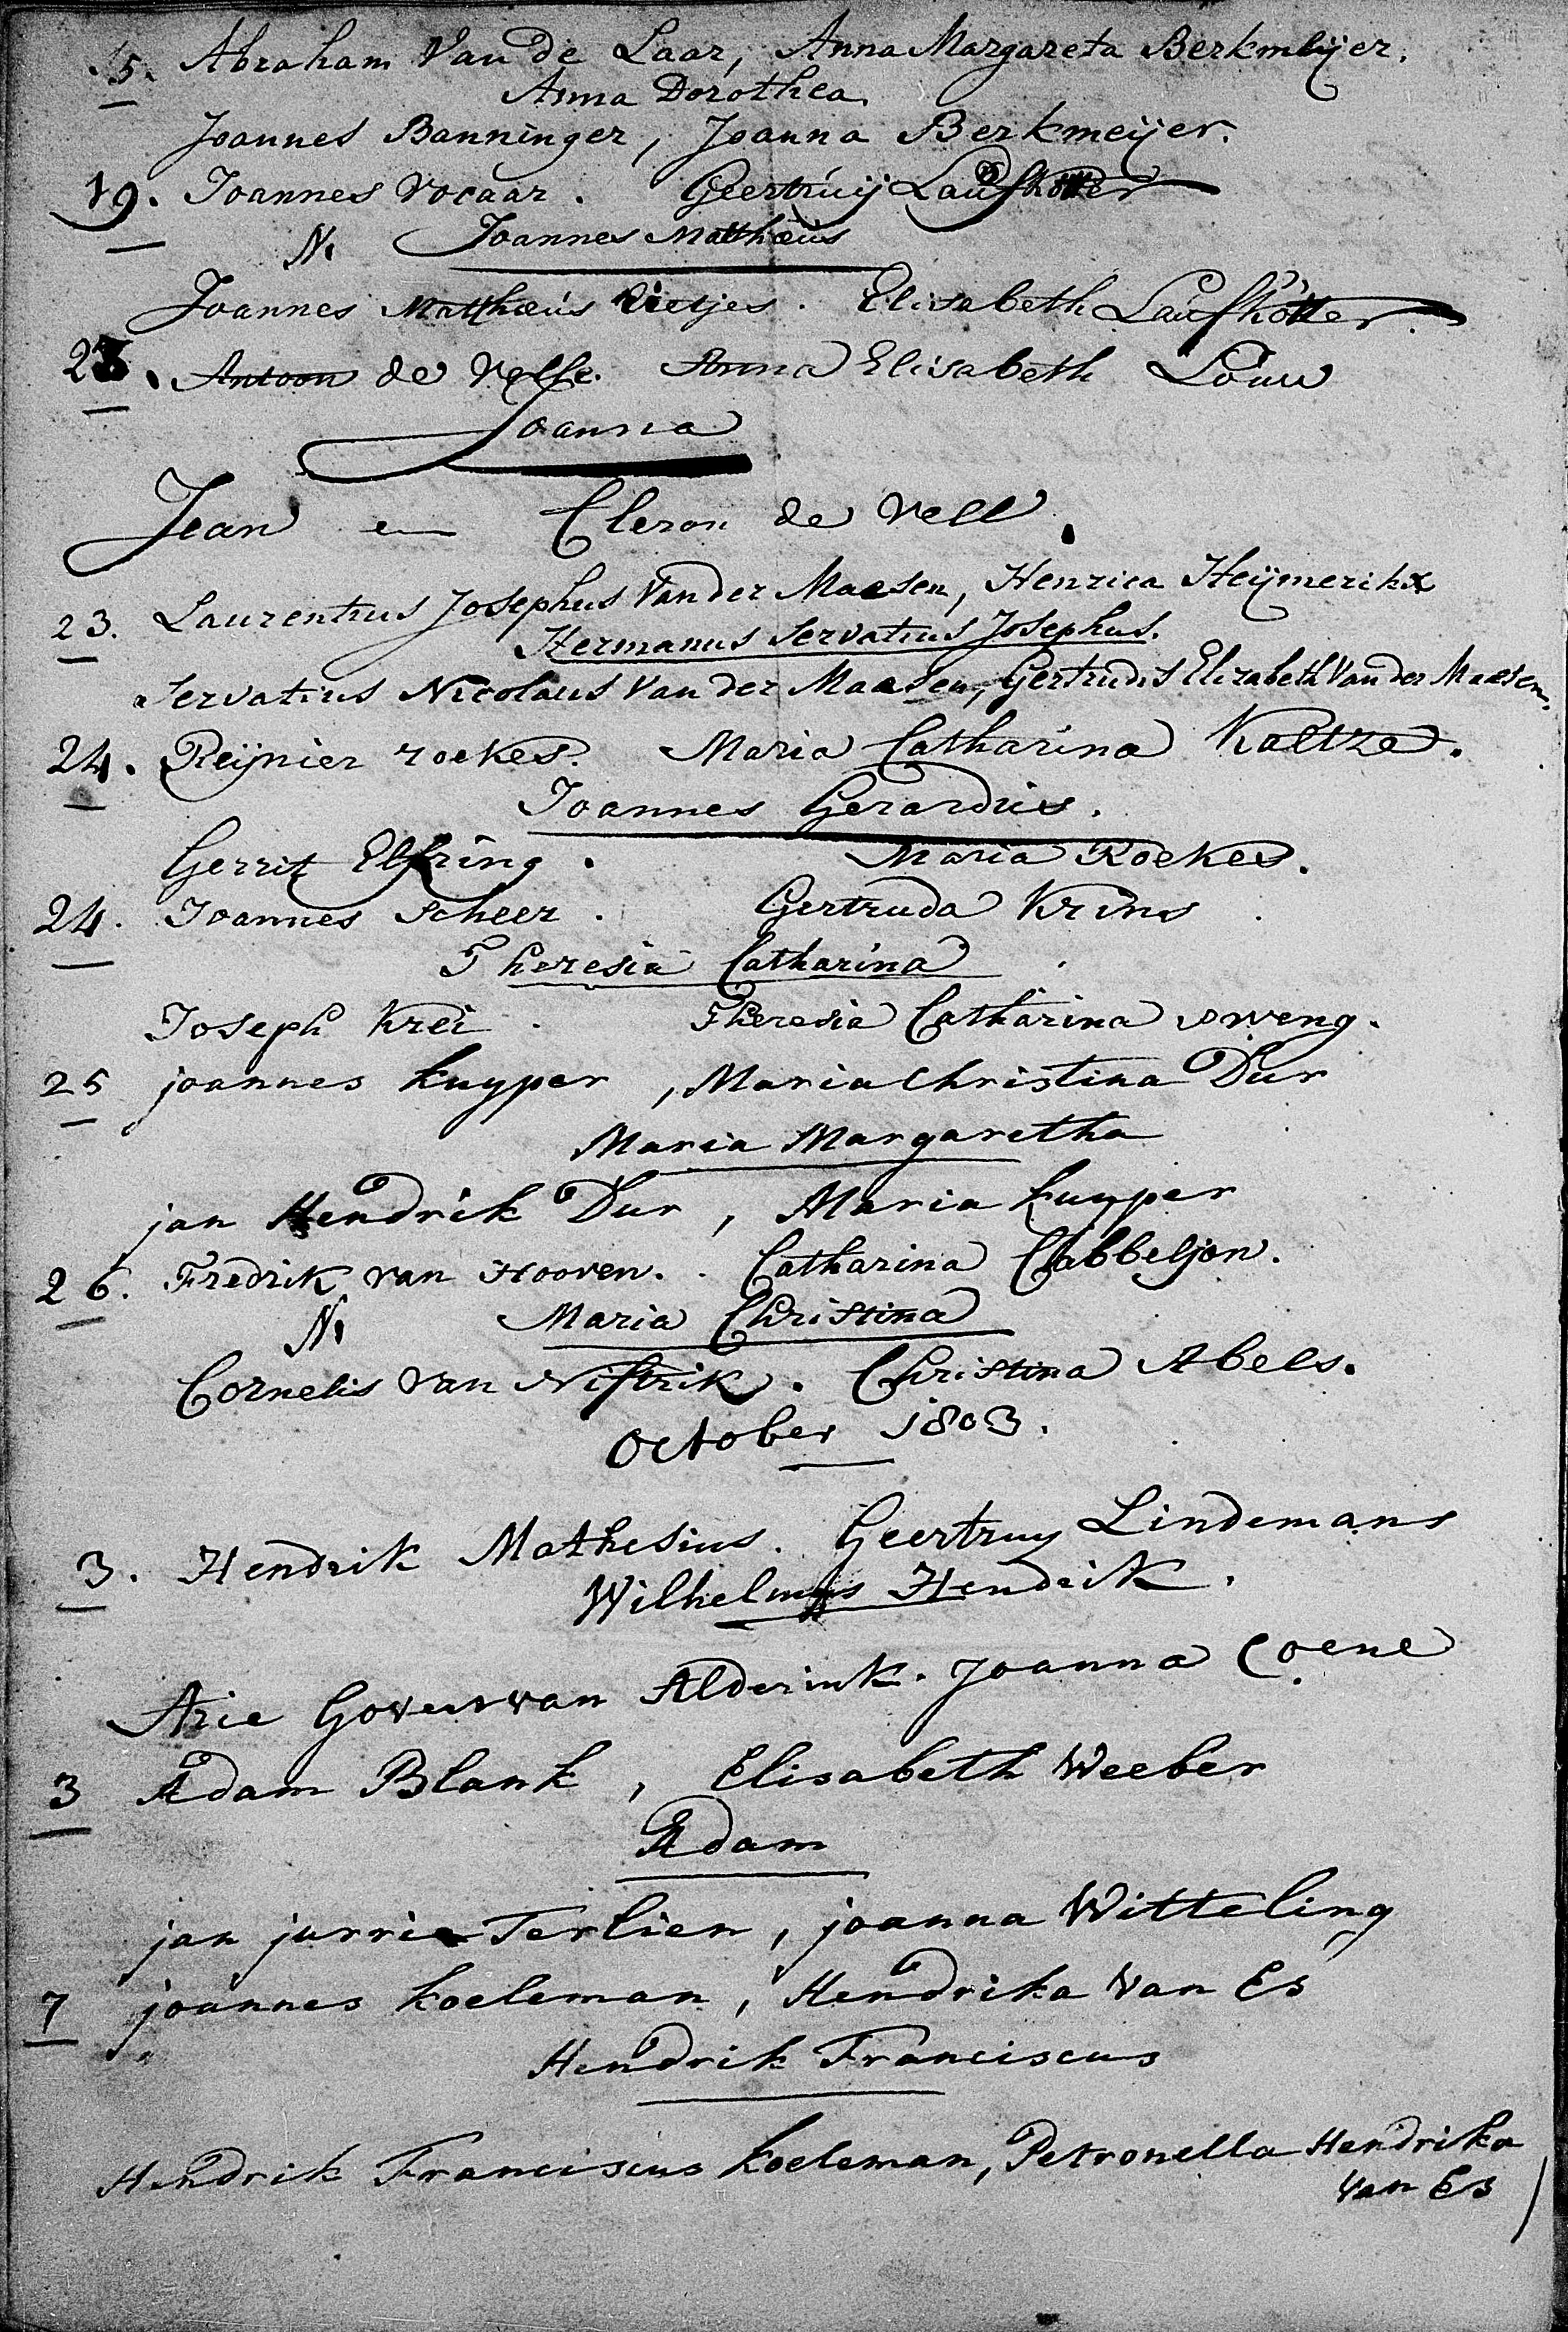 15. Abraham Van de Laar, Anna Margareta Berkmeijer.
Anna Dorothea
Joannes Banninger, Joanna Berkmeijer.
19. Joannes Vocaar. Geertruij Laufkötter
N. Joannes Matthæus
Joannes Matthæus Eietjes. Elisabeth Laufkötter.
23. Antoon de Velle. Anna Elisabeth Louw
Joanna
Jean en Cleron de Vell.
23. Laurentius Josephus Van der Maesen, Henrica Heijmerikx
Hermanus Servatius Josephus.
Servatius Nicolaus Van der Maesen, Gertrudis Elizabeth Van der Maesen.
24. Reijnier roekes. Maria Catharina Kaltze.
Joannes Gerardus.
Gerrit Elfring. Maria Roekes.
24. Joannes Scheer. Gertruda Krins
Theresia Catharina
Joseph Krei. Theresia Catharina sweng.
25 joannes kuyper, Maria Christina Dur
Maria Margaretha
jan Hendrik Dur, Maria kuyper
26. Fredrik van Hooven. Catharina Cabbeljon.
N. Maria Christina
Cornelis van Niftrik. Christina Abels.
October 1803.
3. Hendrik Mathesius. Geertruy Lindemans
Wilhelmus Hendrik.
Arie Govers van Alderink. Joanna Coene
3 Adam Blank, Elisabeth Weeber
Adam
jan jurrie Terlien, joanna Witteling
7 joannes koeleman, Hendrika Van Es
Hendrik Franciscus
Hendrik Franciscus koeleman, Petronella Hendrika
Van Es